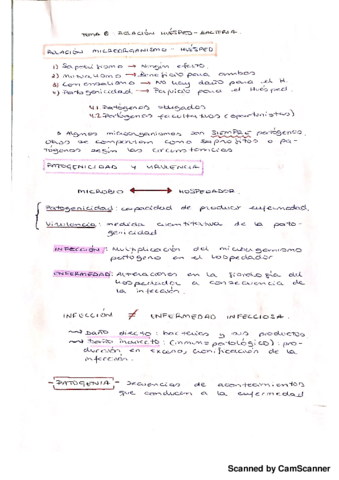 TEMA 6: RELACIÓN HUÉSPED - BACTERIA.
RELACIÓN MICROORGANISMO - HUÉSPED
1) Saprofitismo → Ningún efecto.
2) Mutualismo → Beneficio para ambos
3) Comensalismo → No hay daño para el H.
4) Patogenicidad → Perjuicio para el Huésped.
4.1 Patógenos obligados
4.2 Patógenos facultativos (oportunistas)
Algunos microorganismos son SIEMPRE patógenos,
otros se comportan como saprofitos o pa-
tógenos según las circunstancias
PATOGENICIDAD Y VIRULENCIA
MICROBIO ↔ HOSPEDADOR.
Patogenicidad: capacidad de producir enfermedad.
Virulencia: medida cuantitativa de la pato-
genicidad
INFECCIÓN: Multiplicación del microorganismo
patógeno en el hospedador
ENFERMEDAD: Alteraciones en la fisiología del
hospedador a consecuencia de
la infección.
INFECCIÓN ≠ ENFERMEDAD INFECCIOSA.
Daño directo: bacterias y sus productos
Daño indirecto: (inmunopatológico): pro-
ducción en exceso de la
infección.
- PATOGENIA - secuencias de acontecimientos
que conducen a la enfermedad
Scanned by CamScanner